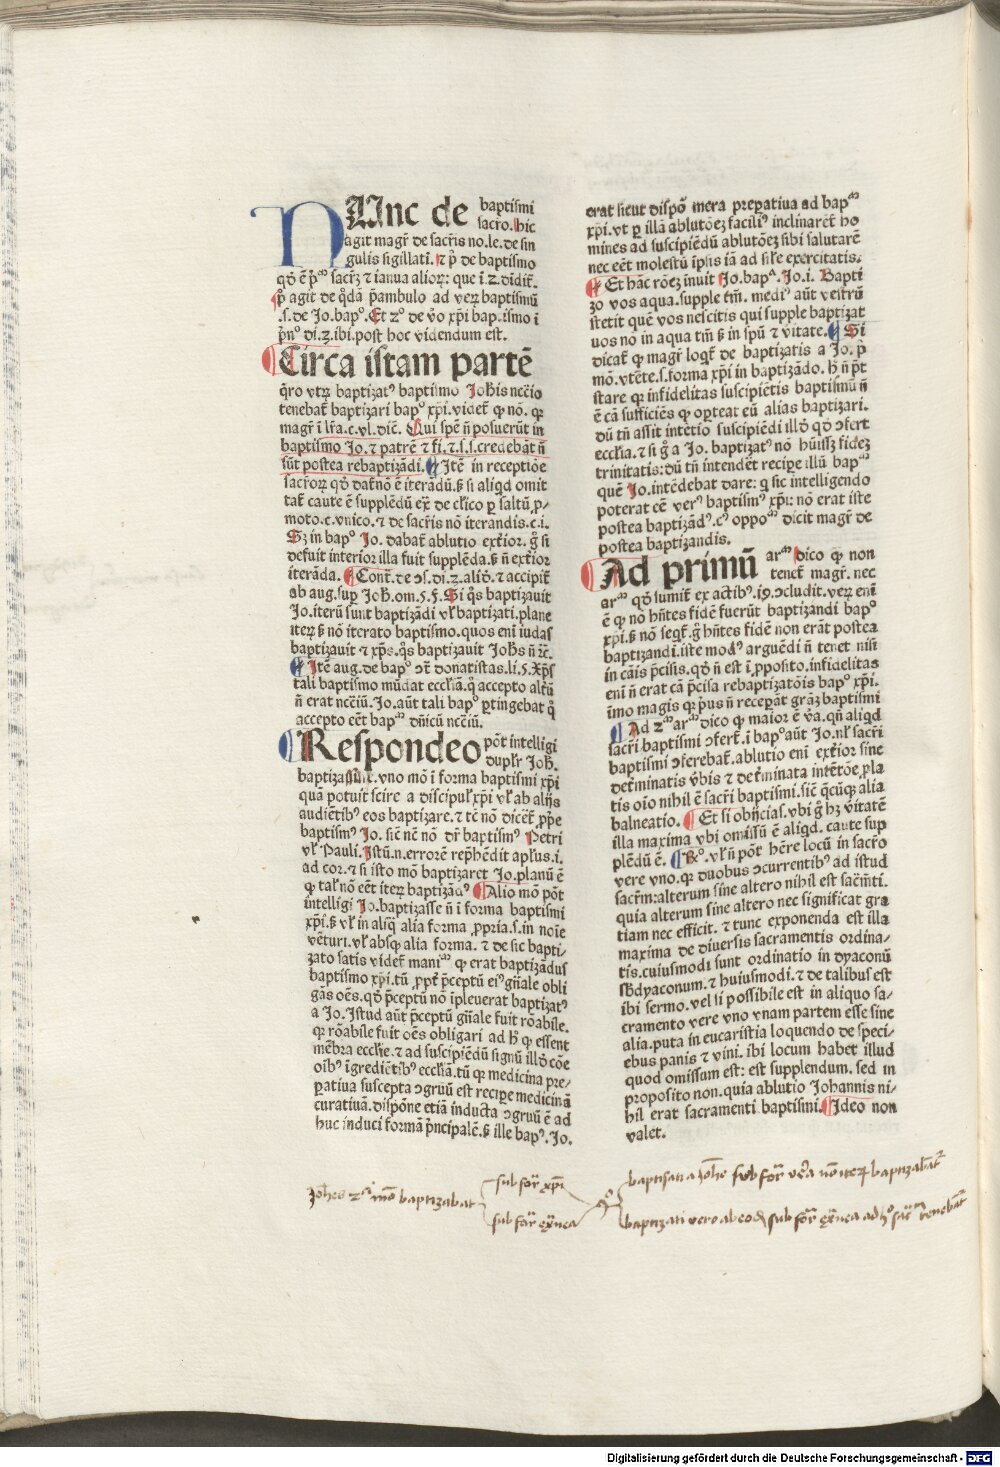 NUnc de baptismi
sacro. hic
agit magr̄ de sacr̄is no.le.de sin
gulis sigillati. ⁊ p̄ de baptismo
qd̄ ē pᵐ sacrꝫ ⁊ ianua alioꝝ: que i.2.dīdit̄.
p̄ agit de q̄dā p̄ambulo ad veꝝ baptismū
.s.de Jo.bapº. Et 2º de v̄o xp̄i bap.ismo i
p̄nº di.2.ibi.post hoc videndum est.
Circa istam partē
q̄ro vtꝝ baptizatꝰ baptismo Joh̄is nec̄io
tenebat̄ baptizari bapº xp̄i.videt̄ ꝙ nō. ꝙ
magr̄ i lr̄a.c.vl.diē. Qui spē n̄ posuerūt in
baptismo Jo.⁊ patrē ⁊ fi.⁊.s.s.credebāt n̄
sūt postea rebaptizādi. Itē in receptiōe
sacroꝝ qd̄ dat̄ nō ē iterādū.ꝫ si aliqd omit
tat̄ caute ē supplēdū ex̄ de cl̄ico ꝑ saltū ꝓ-
moto.c.vnico.⁊ de sacr̄is nō iterandis.c.i.
Sꝫ in bapº Jo. dabat̄ ablutio ext̄ior. ḡ si
defuit interior illa fuit supplēda.ꝫ n̄ ext̄ior
iterāda. Cont̄.de ↄs̄.di.2.aliō.⁊ accipit̄
ab aug.suꝑ Joh̄.om.5.§. Si q̄s baptizauit
Jo.iterū sunt baptizādi vl̄ baptizati.plane
iteꝝ ꝫ nō iterato baptismo.quos eni iudas
baptizauit ⁊ xp̄s.q̄s baptizauit Joh̄s n̄ r̄c̄.
Itē aug.de bapº ↄt̄ donatistas.li.5.Xp̄s
tali baptismo mūdat eccl̄iā.q̄ accepto alt̄ū
n̄ erat nec̄iū.Jo.aūt tali bapº ꝑtingebat q̄
accepto eēt bapᵐ dn̄icū nec̄iū.
Respondeo pōt intelligi
duplr̄ Joh̄.
baptizassse.vno mō i forma baptismi xp̄i
quā potuit scire a discipul̄ xp̄i vl̄ ab alijs
audiētibꝰ eos baptizare.⁊ tē nō dicēt̄ ꝓp̄e
baptismꝰ Jo. siē nē nō dr̄ baptismꝰ Petri
vl̄ Pauli. Istū.n.errorē repͪēdit apl̄us.i.
ad cor.⁊ si isto mō baptizaret Jo.planū ē
ꝙ tal̄ nō eēt iteꝝ baptizādꝰ Alio mō pōt
intelligi Jo.baptizasse n̄ i forma baptismi
xp̄i.ꝫ vl̄ in aliq̄ alia forma ꝓpria.s.in noīe
vēturi.vl̄ absqꝫ alia forma. ⁊ de sic bapti-
zato satis videt̄ maniᵐ ꝙ erat baptizādus
baptismo xp̄i.tū ꝓpt̄ p̄ceptū eiꝰ gn̄ale obli
gās oēs.qd̄ p̄ceptū nō ip̄leuerat baptizatꝰ
a Jo.Istud aūt p̄ceptū gn̄ale fuit rōabile.
ꝙ rōabile fuit oēs obligari ad hº ꝙ essent
mēbra eccl̄ie.⁊ ad suscipiēdū signū ill̄d cōe
oībꝰ īgrediētibꝰ eccl̄iā.tū ꝙ medicina pre-
ꝑatiua suscepta ↄgruū est recipe medicinā
curatiuā.dispōne etiā inducta ↄgruū ē ad
huc induci formā p̄ncipalē.ꝫ ille bapꝰ.Jo.
erat sicut dispō mera preꝑatiua ad bapᵐ
xp̄i.vt ꝑ illā ablutōeꝫ faciliꝰ inclinarēt̄ ho
mines ad suscipiēdū ablutōeꝫ sibi salutarē
nec eēt molestū ip̄sis iā ad sil̄e exercitatis.
Et hāc rōeꝫ īnuit Jo.bapᵃ.Jo.i. Bapti
zo vos aqua.supple tm̄. mediꝰ aūt vestrū
stetit quē vos nescitis qui supple baptizat
uos nō in aqua tm̄ ꝫ in spū ⁊ v̄itate. Si
dicat̄ ꝙ magr̄ loqt̄ de baptizatis a Jo. p̄
mō.vtēte.s.forma xp̄i in baptizādo. hº n̄ pt̄
stare ꝙ infidelitas suscipiētis baptismū n̄
ē cā sufficiēs ꝙ oꝑteat eū alias baptizari.
dū tn̄ assit intētio suscipiēdi ill̄d qd̄ ↄfert
eccl̄ia.⁊ si ḡ a Jo. baptizatꝰ nō hūissꝫ fideꝫ
trinitatis:dū tn̄ intendēt recipe illū bapᵐ
quē Jo.intēdebat dare: q̄ sic intelligendo
poterat eē verꝰ baptismꝰ xp̄i: nō erat iste
postea baptizādꝰ.cꝰ oppoᵐ dicit magr̄ de
postea baptizandis.
Ad primū arᵐ dico ꝙ non
tenet̄ magr̄. nec
arᵐ qd̄ sumit̄ ex actibꝰ.19.ↄcludit.veꝝ eni
ē ꝙ nō hn̄tes fidē fuerūt baptizandi bapº
xp̄i.ꝫ nō seqt̄.ḡ hn̄tes fidē non erāt postea
baptizandi.iste modꝰ arguēdi n̄ tenet nisi
in cāis p̄cisis.qd̄ n̄ est i ꝓposito.infidelitas
eni n̄ erat cā p̄cisa rebaptizatōis bapº xp̄i.
īmo magis ꝙ p̄us n̄ receꝑāt grāꝫ baptismi
Ad 2ᵐ arᵐ dico ꝙ maior ē v̄a.qn̄ aliqd
sacr̄i baptismi ↄfert̄.i bapº aūt Jo.nl̄ sacr̄i
baptismi ↄferebat̄.ablutio eni ext̄ior sine
det̄minatis v̄bis ⁊ det̄minata intētōe ꝓla
tis oīo nihil ē sacr̄i baptismi.siē q̄cūqꝫ alia
balneatio. Et si obijcias.vbi ḡ hꝫ v̄itatē
illa maxima vbi omissū ē aliqd. caute sup
plēdū ē. Rº.vl̄ n̄ pōt hēre locū in sacr̄o
vere vno.ꝙ duobus ↄcurrentibꝰ ad istud
sacr̄m:alterum sine altero nihil est sacm̄ti.
quia alterum sine altero nec significat gra
tiam nec efficit. ⁊ tunc exponenda est illa
maxima de diuersis sacramentis ordina-
tis.cuiusmodi sunt ordinatio in dyaconū
sb̄dyaconum.⁊ huiusmodi.⁊ de talibus est
ibi sermo.vel si possibile est in aliquo sa-
cramento vere vno vnam partem esse sine
alia.puta in eucaristia loquendo de speci-
ebus panis ⁊ vini. ibi locum habet illud
quod omissum est: est supplendum. sed in
proposito non.quia ablutio Johannis ni-
hil erat sacramenti baptismi. Ideo non
valet.
Joh̄es 2ᶜⁱ mō baptizabat
sub for̄ xp̄i
sub for̄ ex̄nea
baptisati a Joh̄e sub for̄ vera non iteꝝ baptizabāt̄
baptizati vero ab eod̄ sub for̄ ex̄nea ad hº sac̄ᵐ tenebāt̄
Digitalisierung gefördert durch die Deutsche Forschungsgemeinschaft - DFG